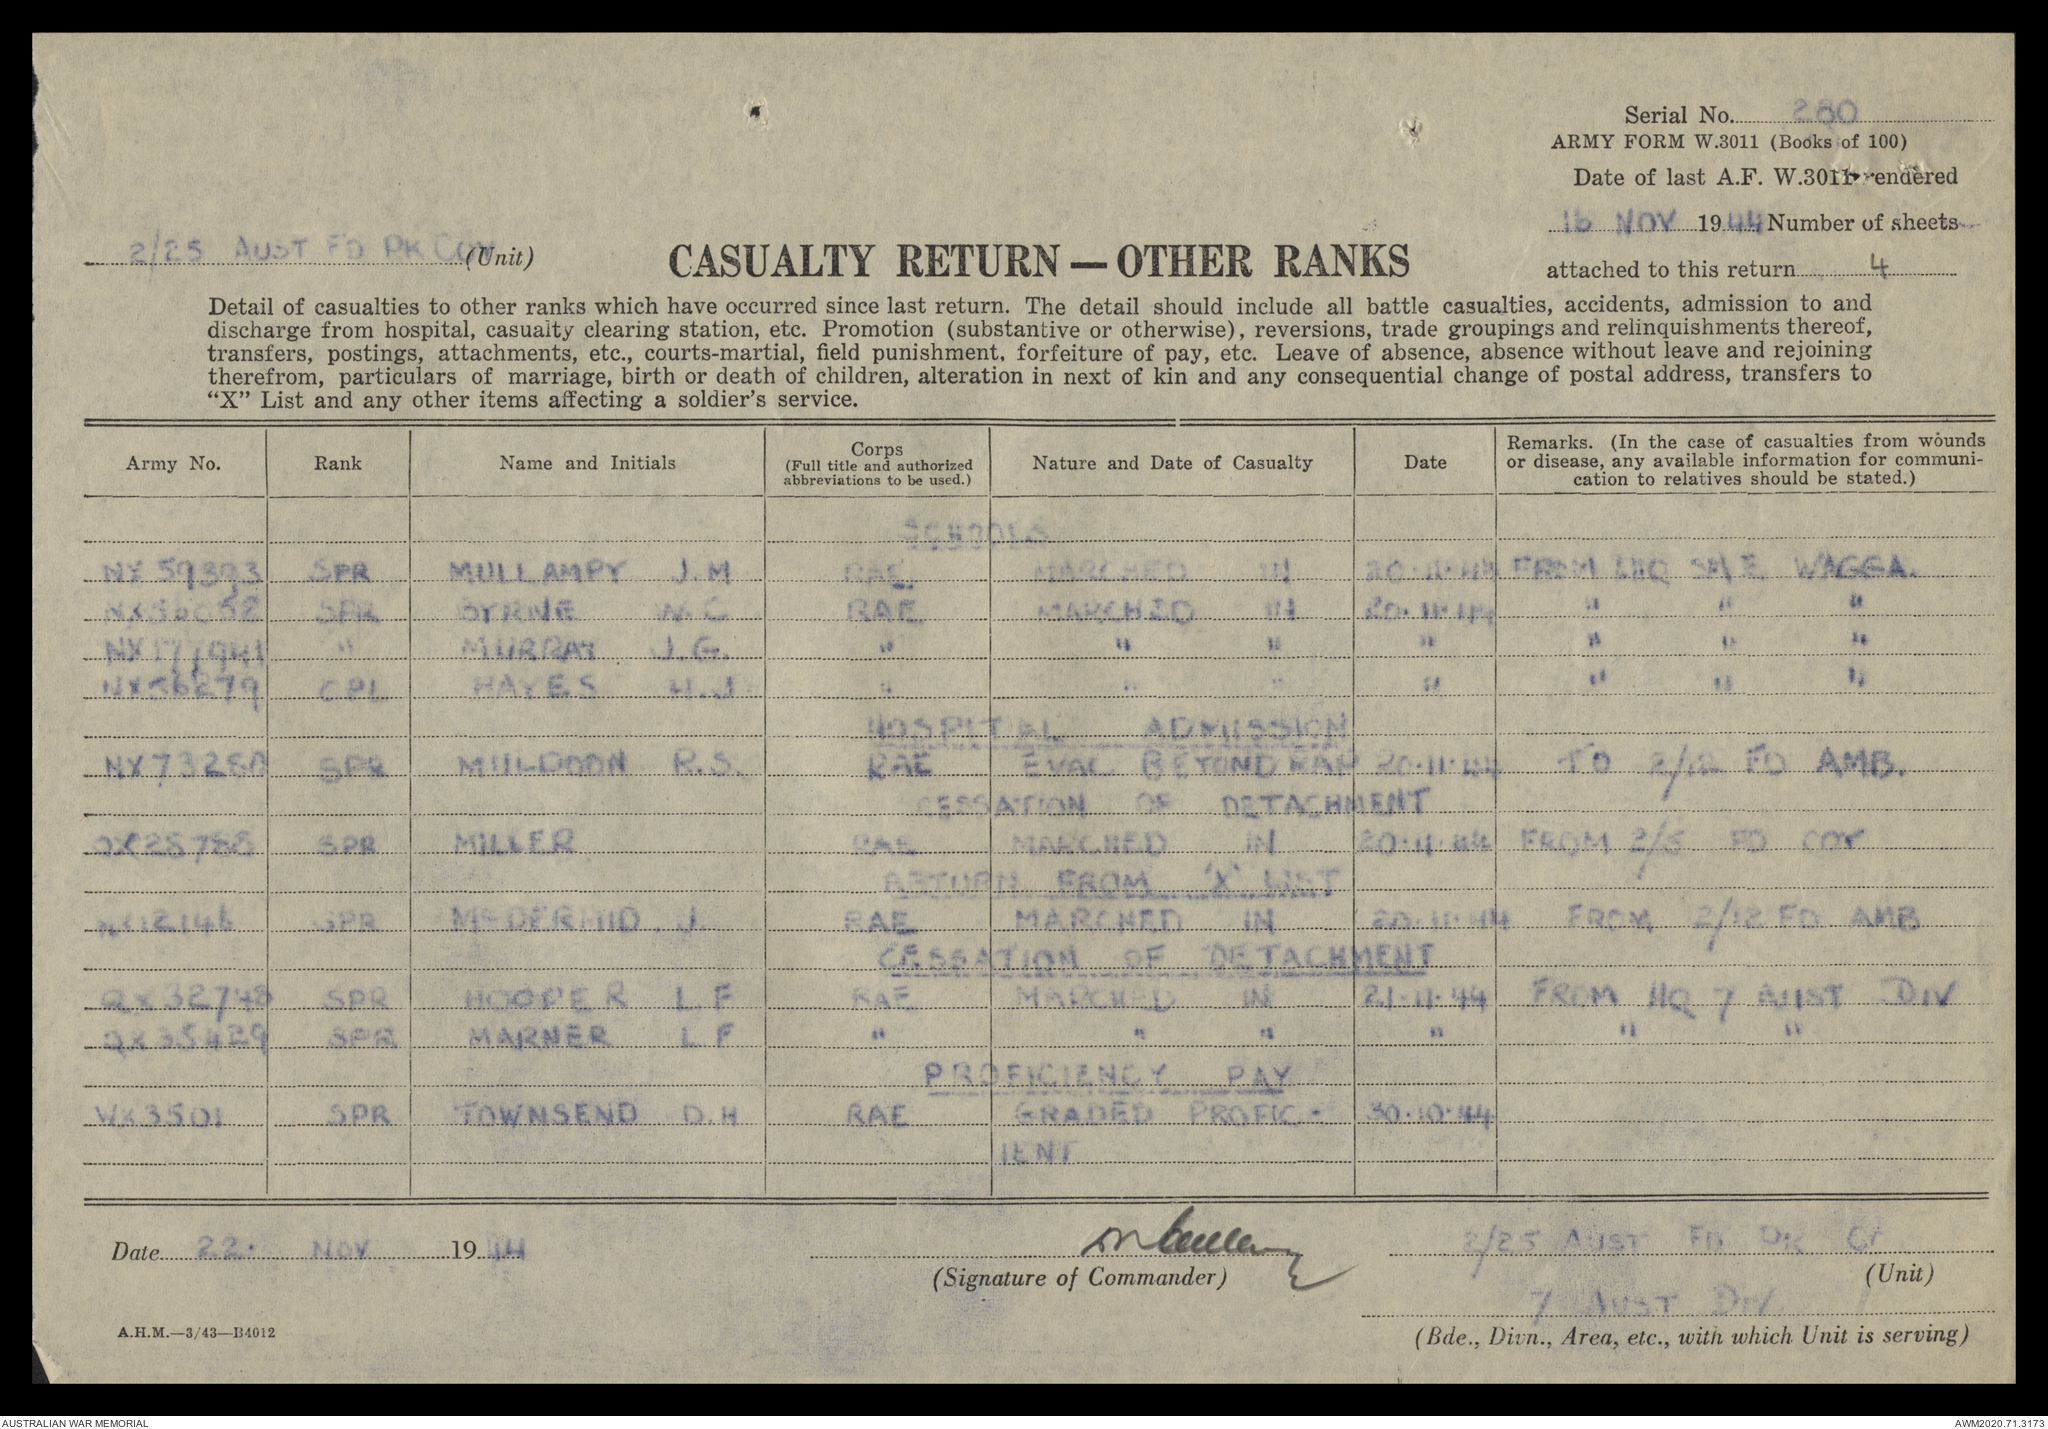 Serial No. 280
ARMY FORM W.3011 (Books of 100)
Date of last A.F. W.3011 rendered
16 NOV 1944 Number of sheets
attached to this return 4
2/25 AUST FD PK COY (Unit)
CASUALTY RETURN — OTHER RANKS
Detail of casualties to other ranks which have occurred since last return. The detail should include all battle casualties, accidents, admission to and
discharge from hospital, casualty clearing station, etc. Promotion (substantive or otherwise), reversions, trade groupings and relinquishments thereof,
transfers, postings, attachments, etc., courts-martial, field punishment, forfeiture of pay, etc. Leave of absence, absence without leave and rejoining
therefrom, particulars of marriage, birth or death of children, alteration in next of kin and any consequential change of postal address, transfers to
“X” List and any other items affecting a soldier’s service.
Army No. Rank Name and Initials Corps (Full title and authorized abbreviations to be used.) Nature and Date of Casualty Date Remarks. (In the case of casualties from wounds or disease, any available information for communication to relatives should be stated.)
SCHOOLS
NX59393 SPR MULLAMPY J.M RAE MARCHED IN 20.11.44 FROM LHQ SME WAGGA.
NX56058 SPR BYRNE W.C RAE MARCHED IN 20.11.44 " " "
NX177941 " MURRAY J.G. " " " " " " "
NX56279 CPL HAYES H.J " " " " " " "
HOSPITAL ADMISSION
NX73280 SPR MULDOON R.S. RAE EVAC BEYOND RAP 20.11.44 TO 2/12 FD AMB.
CESSATION OF DETACHMENT
SPR MILLER RAE MARCHED IN 20.11.44 FROM 2/5 FD COY
RETURN FROM 'X' LIST
SPR McDERMID J. RAE MARCHED IN 20.11.44 FROM 2/12 FD AMB
CESSATION OF DETACHMENT
QX32748 SPR HOOPER L F RAE MARCHED IN 21.11.44 FROM HQ 7 AUST DIV
QX35429 SPR MARNER L F " " " " " "
PROFICIENCY PAY
WX3501 SPR TOWNSEND D.H RAE GRADED PROFIC- 30.10.44
IENT
Date 22. NOV 1944
(Signature of Commander)
2/25 AUST FD PK CY
(Unit)
7 AUST DIV
(Bde., Divn., Area, etc., with which Unit is serving)
A.H.M.—3/43—B4012
AUSTRALIAN WAR MEMORIAL
AWM2020.71.3173